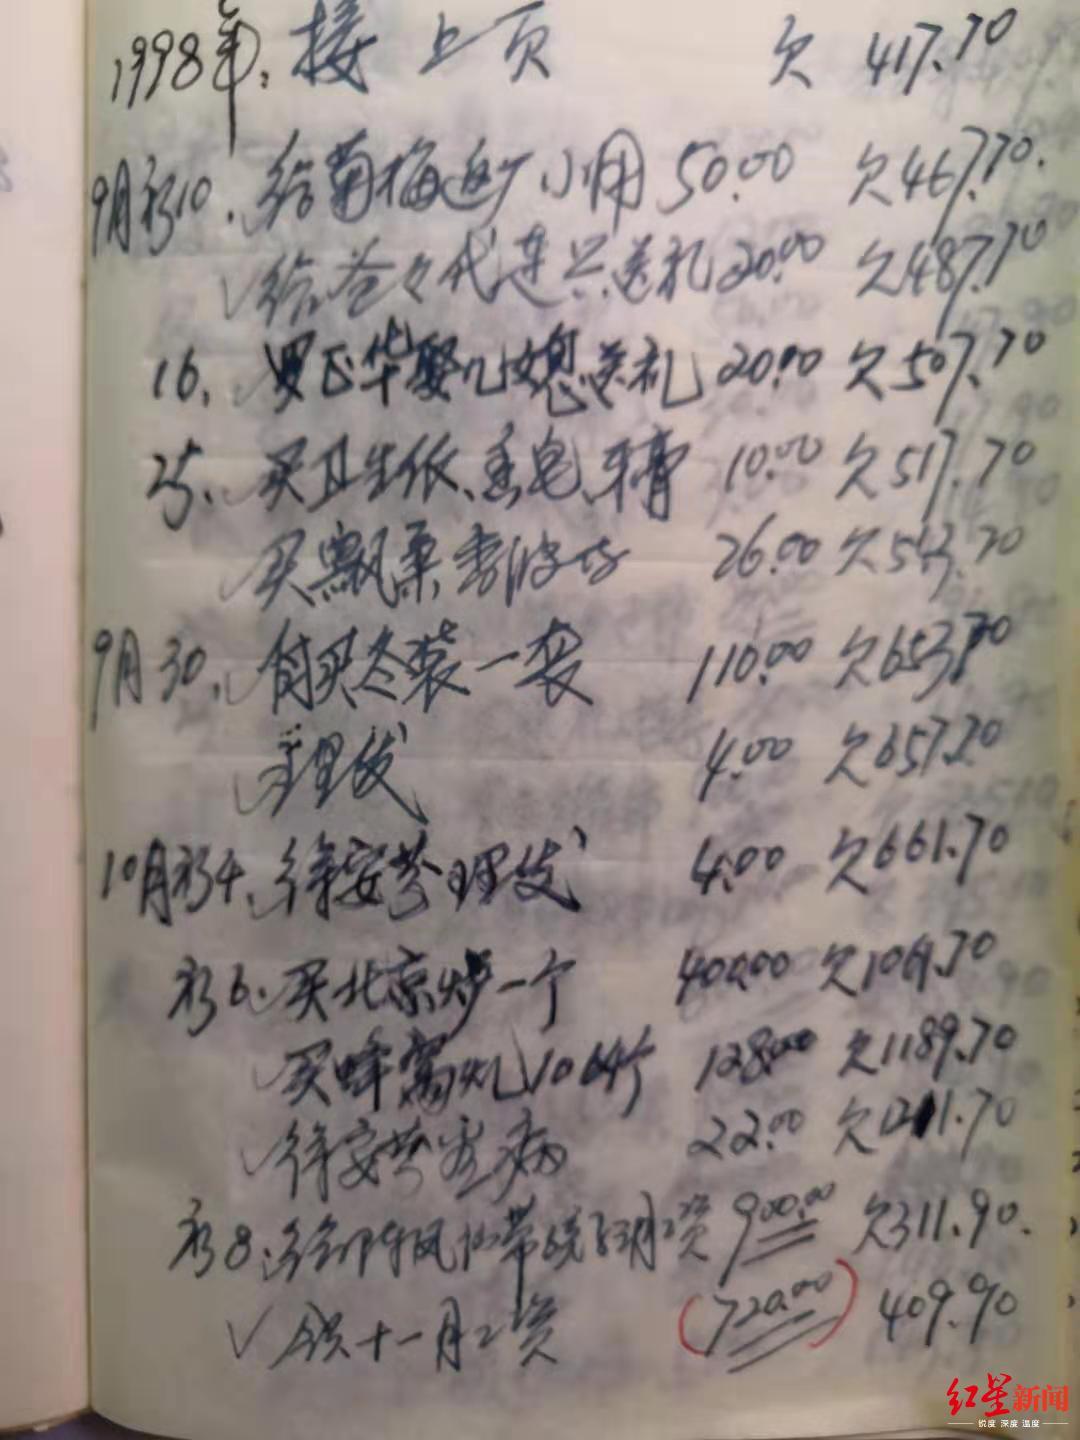 1998年: 接上页 欠 417.70
9月初10. 给菊梅 小用 50.00 欠467.70.
√ 给爸々代连兴送礼 20.00 欠487.70
16. √ 罗正华娶儿媳送礼 20.00 欠507.70
25. √ 买卫生纸、香皂、牙膏 10.00 欠517.70
√ 买飘柔 26.00 欠543.70
9月30. √ 付买冬装一套 110.00 欠653.70
√ 理发 4.00 欠657.70
10月初4. √ 徐安芬理发 4.00 欠661.70
初6. √ 买北京炉一个 400.00 欠1061.70
√ 买蜂窝 128.00 欠1189.70
√ 徐安芬看病 22.00 欠1211.70
初8. √ 月工资 900.00 欠311.90.
√ 领十一月工资 (720.00) 409.90
红星新闻
锐度 深度 温度